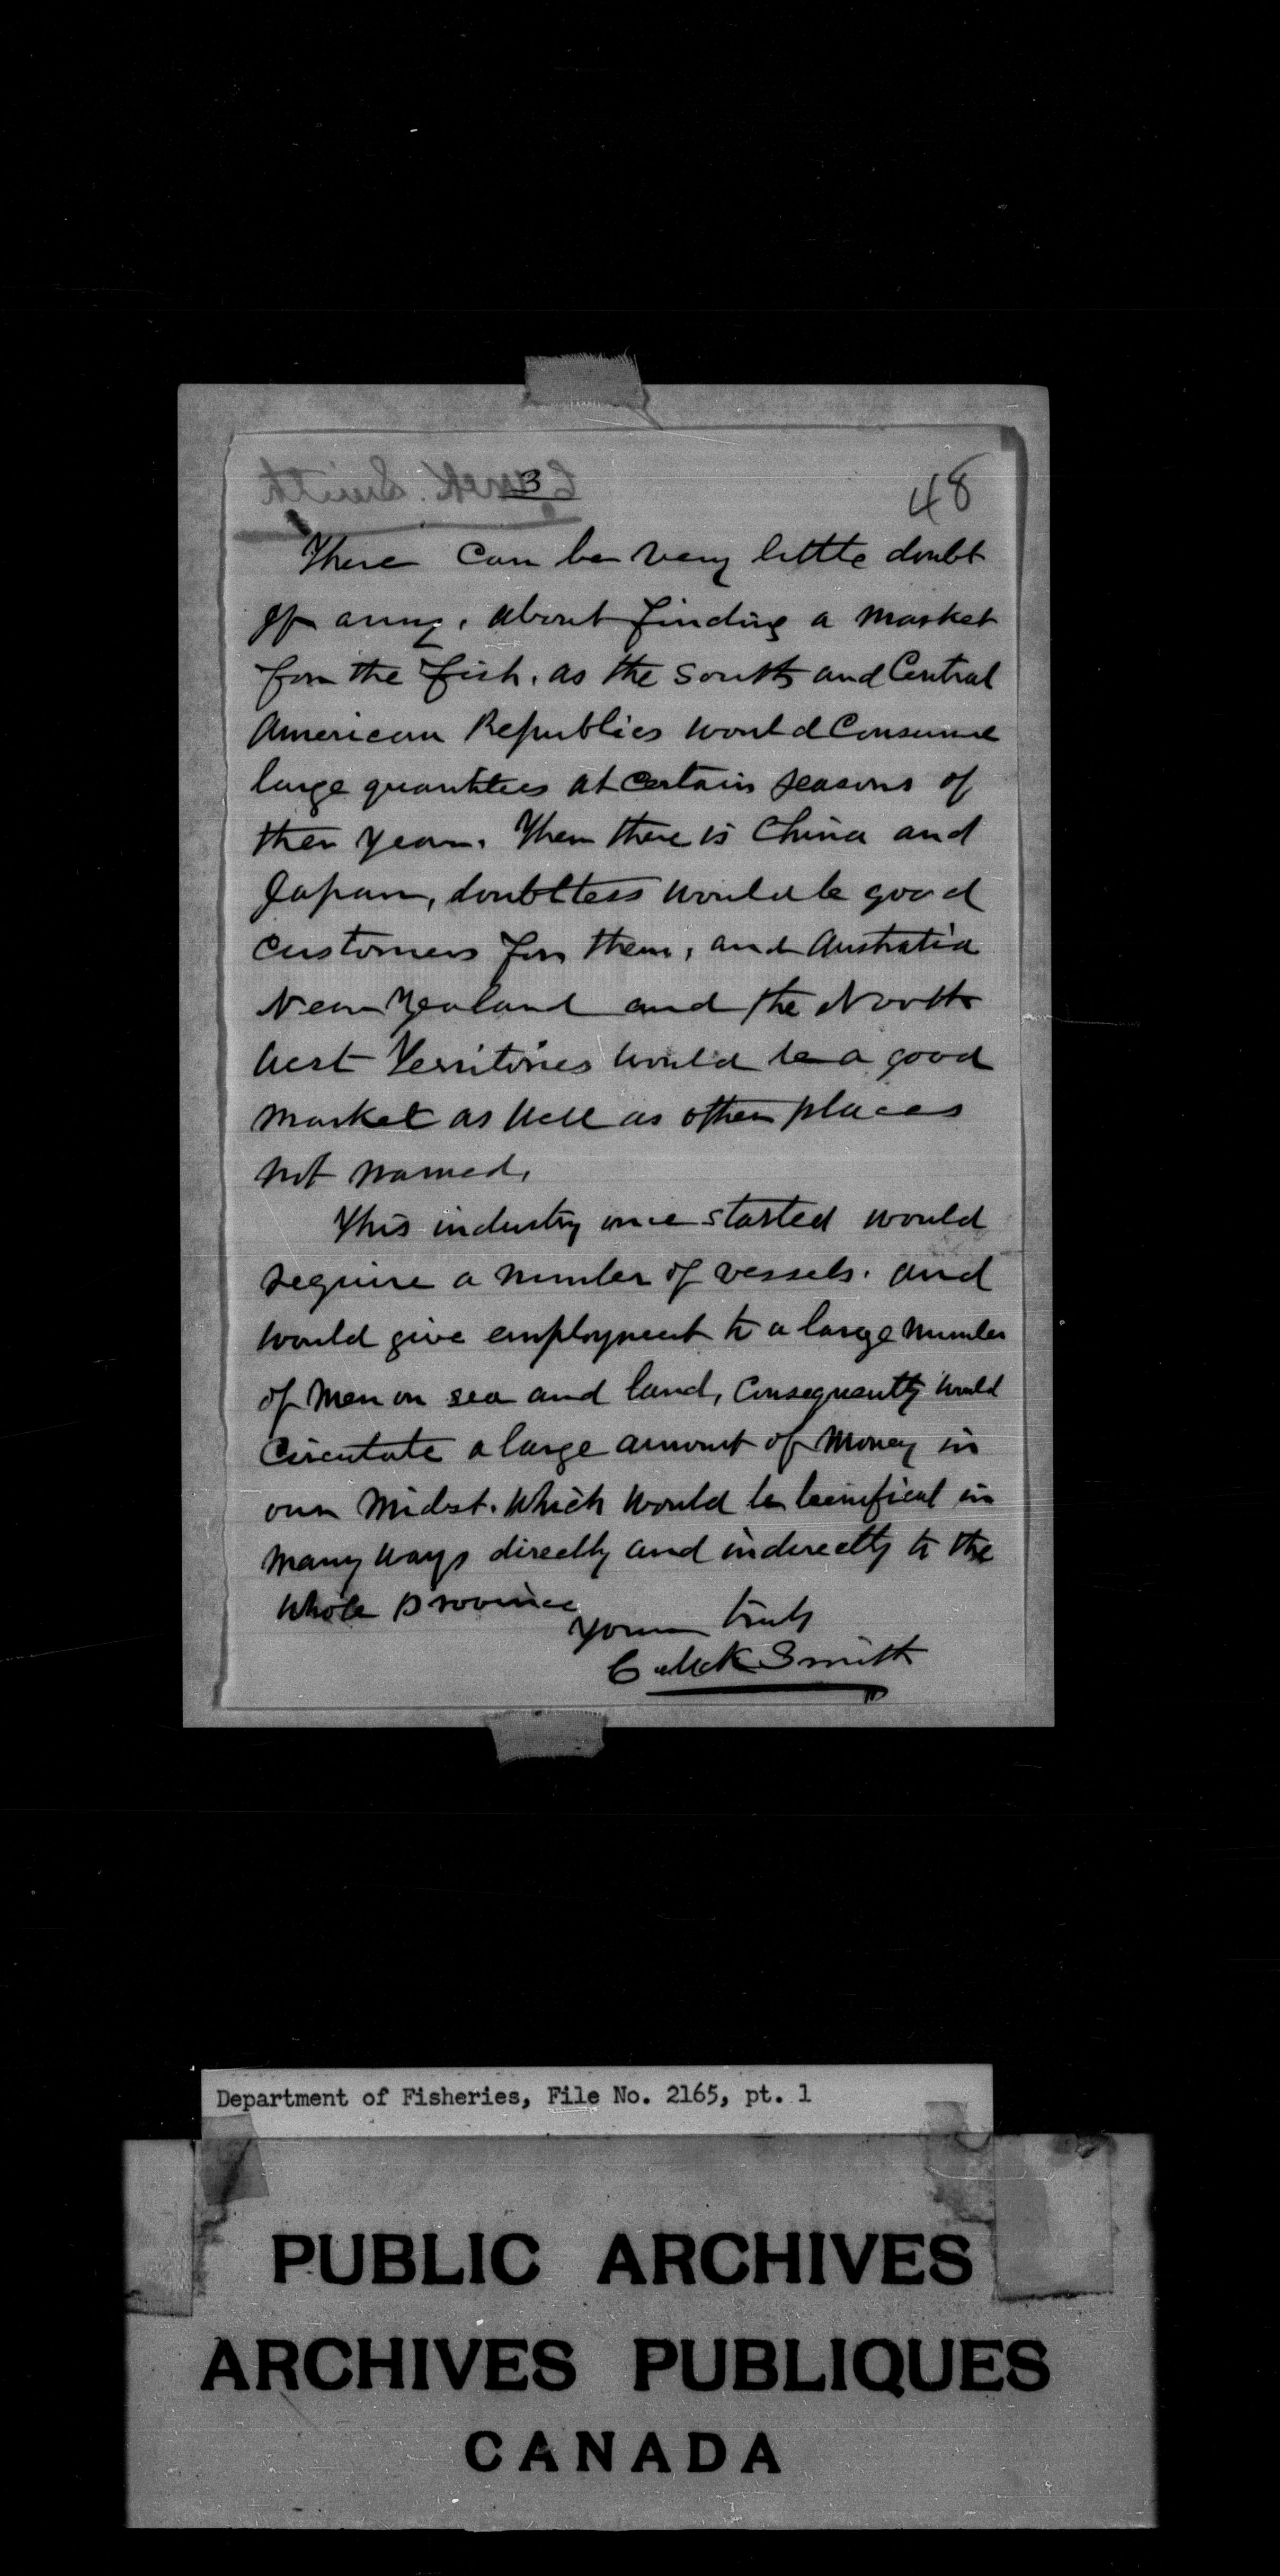 3
48
There can be very little doubt
if any, about finding a market
for the fish. as the South and Central
American Republics would Consume
large quantities at certain seasons of
the year. Then there is China and
Japan, doubtless would be good
customers for them, and Australia
New Zealand and the North
West Territories would be a good
market as well as other places
not named.
This industry once started would
require a number of vessels. and
would give employment to a large number
of men on sea and land, Consequently would
Circulate a large amount of money in
our midst. which would be beneficial in
many ways directly and indirectly to the
whole province
yours truly
C McK Smith
Department of Fisheries, File No. 2165, pt. 1
PUBLIC ARCHIVES
ARCHIVES PUBLIQUES
CANADA